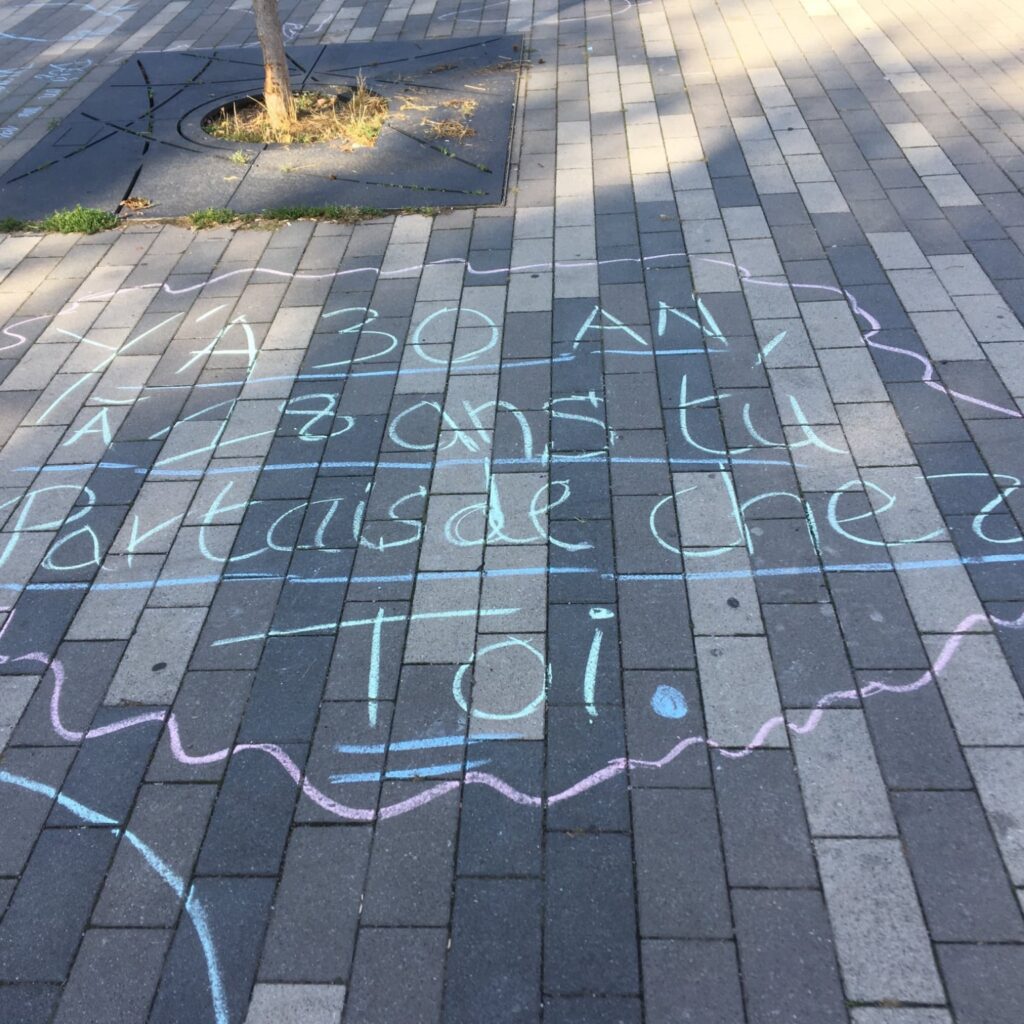 Y A 30 AN,
À 28 ans tu
Partais de chez
Toi.